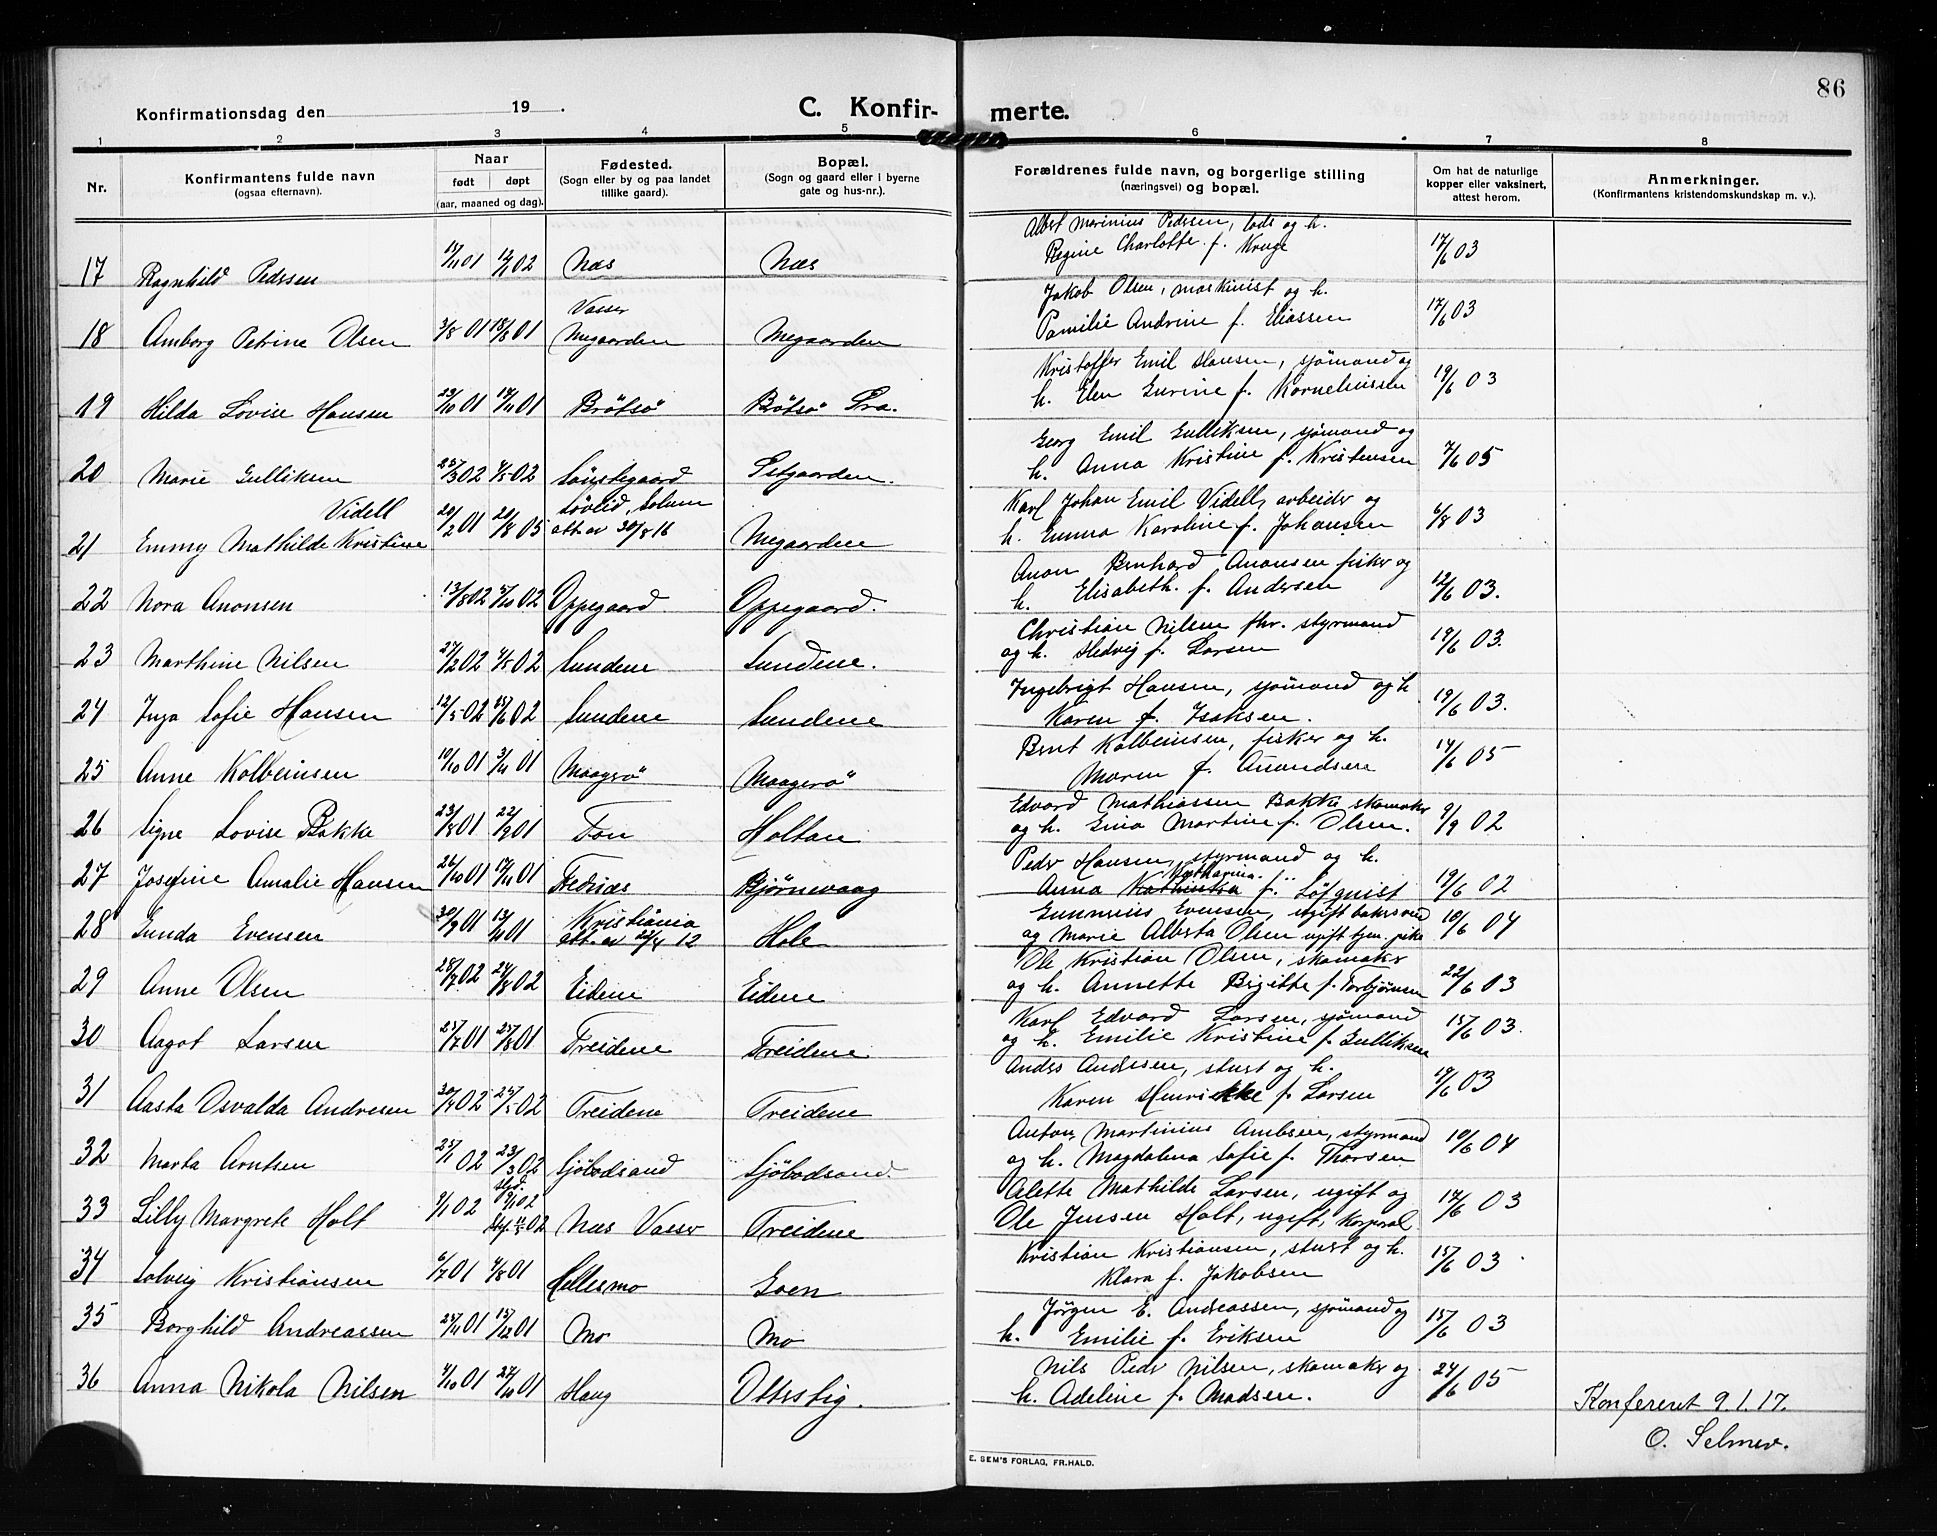 86
Konfirmationsdag den 19 .
C. Konfir- merte.
1 2 3 4 5 6 7 8
Nr.
Konfirmantens fulde navn
(ogsaa efternavn).
Naar
født døpt
(aar, maaned og dag).
Fødested.
(Sogn eller by og paa landet
tillike gaard).
Bopæl.
(Sogn og gaard eller i byerne
gate og hus-nr.).
Forældrenes fulde navn, og borgerlige stilling
(næringsvei) og bopæl.
Om hat de naturlige
kopper eller vaksinert,
attest herom.
Anmerkninger.
(Konfirmantens kristendomskundskap m. v.).
Albert Marinius Pedersen, lods og h.
17 Ragnhild Pedersen Næs Næs Regine Charlotte f. Kruge 17/6 03
Vasser Jakob Olsen, maskinist og h.
18 Amborg Petrine Olsen 3/8 01 18/8 01 Megaarden Megaarden Pamilie Andrine f. Eliassen 17/6 03
Kristoffer Emil Hansen, sjömand og
19 Hilda Lovise Hansen 23/10 01 17/11 01 Brötsö Bötsö Sra. h. Elen Gurine f. Korneliussen 19/6 03
Georg Emil Gulliksen, sjömand og
20 Marie Gulliksen 25/3 02 4/5 02 h. Anna Kristine f. Kristensen 7/6 05
Videll Løvlid, Solum Karl Johan Emil Videll, arbeider og
21 Emmy Mathilde Kristine 20/2 01 20/8 05 att. av 30/8 16 Megaarden h. Emma Karoline f. Johansen 6/8 03
Anon Bernhard Anonsen fisker og
22 Nora Anonsen 13/8 02 5/10 02 Oppegaard Oppegaard. h. Elisabeth f. Andersen 12/6 03.
Christian Nilsen fhr. styrmand
23 Marthine Nilsen 27/2 02 4/5 02 Sundene Sundene. og h. Hedvig f. Larsen 19/6 03.
Ingebrigt Hansen, sjömand og h
24 Inga Sofie Hansen 12/5 02 15/6 02 Sundene Sundene Karen f. Isaksen. 19/6 03.
Bernt Kolbeinsen, fisker og h.
25 Anne Kolbeinsen 10/10 01 3/11 01 Maagerö Maagerö Maren f. Amundsen 14/6 05
Edvard Mathiassen Bakke skomaker
26 Signe Lovise Bakke 23/8 01 22/9 01 Fon Holtan og h. Gina Martine f. Olsen. 9/9 02
Peder Hansen, styrmand og h.
Katharina
27 Josefine Amalie Hansen 26/10 01 17/11 01 Fednæs Bjørnevaag Anna f. Löfquist 19/6 02
Gunnius Evensen, ugift baksvend
28 Gunda Evensen 30/9 01 Kristiania att. av 22/4 12 Hole og Marie Alberta Olsen ugift tjen. pike 10/6 04
Ole Kristian Olsen, skomaker
29 Anne Olsen 28/7 02 24/8 02 Eidene Eidene og h. Annette Birgitte f. Torbjørnsen 22/6 03
Karl Edvard Larsen, sjömand
30 Aagot Larsen 25/7 01 25/8 01 Treidene Treidene og h. Emilie Kristine f. Gulliksen 15/6 03.
Anders Andersen, stuert og h.
31 Aasta Osvalda Andresen 30/4 02 25/5 02 Treidene Treidene Karen Henrikke f. Larsen 19/6 03
Anton Martinius Arntsen, styrmand
32 Marta Arntsen 25/1 02 23/3 02 Sjöbodsand Sjöbodsand. og h. Magdalena Sofie f. Thorsen 10/6 04
Alette Mathilde Larsen, ugift og
33 Lilly Margrete Holt 9/1 02 Næs Vasser Treidene Ole Jensen Holt, ugift, korporal 17/6 03
Kristian Kristiansen, stuert og h.
34 Solveig Kristiansen 6/7 01 4/8 01 Hellesmo Goen Klara f. Jakobsen 15/6 03
Jörgen E. Andreassen, sjömand og
35 Borghild Andreassen 25/11 01 15/12 01 Mo Mo h. Emilie f. Eriksen 15/6 03
Nils Peder Nilsen, skomaker og
36 Anna Nikola Nilsen 4/10 01 27/10 01 Haug Oterstig. h. Adeline f. Madsen. 24/6 05
Konfereret 9.1.17.
O. Selmer.
E. SEM'S FORLAG, FR.HALD.